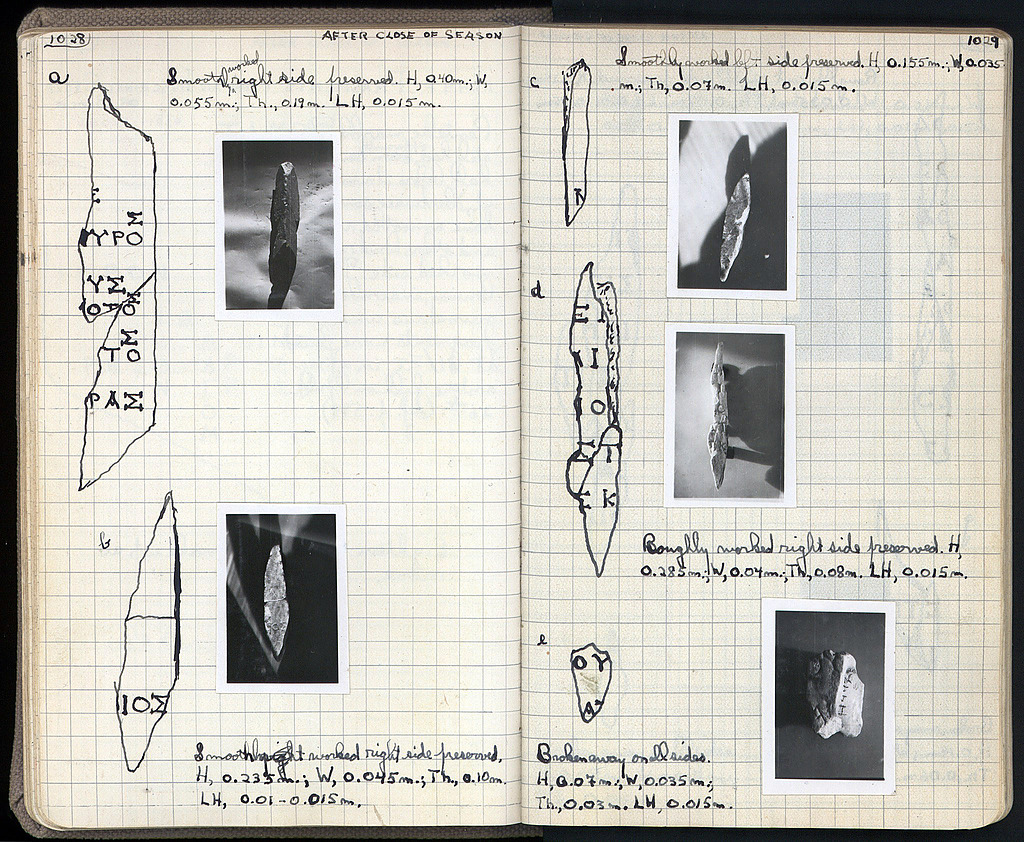 1028
AFTER CLOSE OF SEASON
a
Smooth worked right side preserved. H, 0.40m.; W,
0.055m.; Th., 0.19m. LH, 0.015m.
E
ΥΡΟΣ
ΥΣ
ΤΟΣ
ΑΣ
b
ΙΟΣ
Smoothly worked right side preserved.
H, 0.235m.; W, 0.045m.; Th., 0.10m.
LH, 0.01-0.015m.
1029
c
Smoothly worked left side preserved. H, 0.155m.; W, 0.035
m.; Th, 0.07m. LH, 0.015m.
d
I
I
O
K
Roughly worked right side preserved. H,
0.285m.; W, 0.04m.; Th, 0.08m. LH, 0.015m.
e
ΟΥ
Broken away on all sides.
H, 0.07m.; W, 0.035m.;
Th., 0.03m. LH, 0.015m.